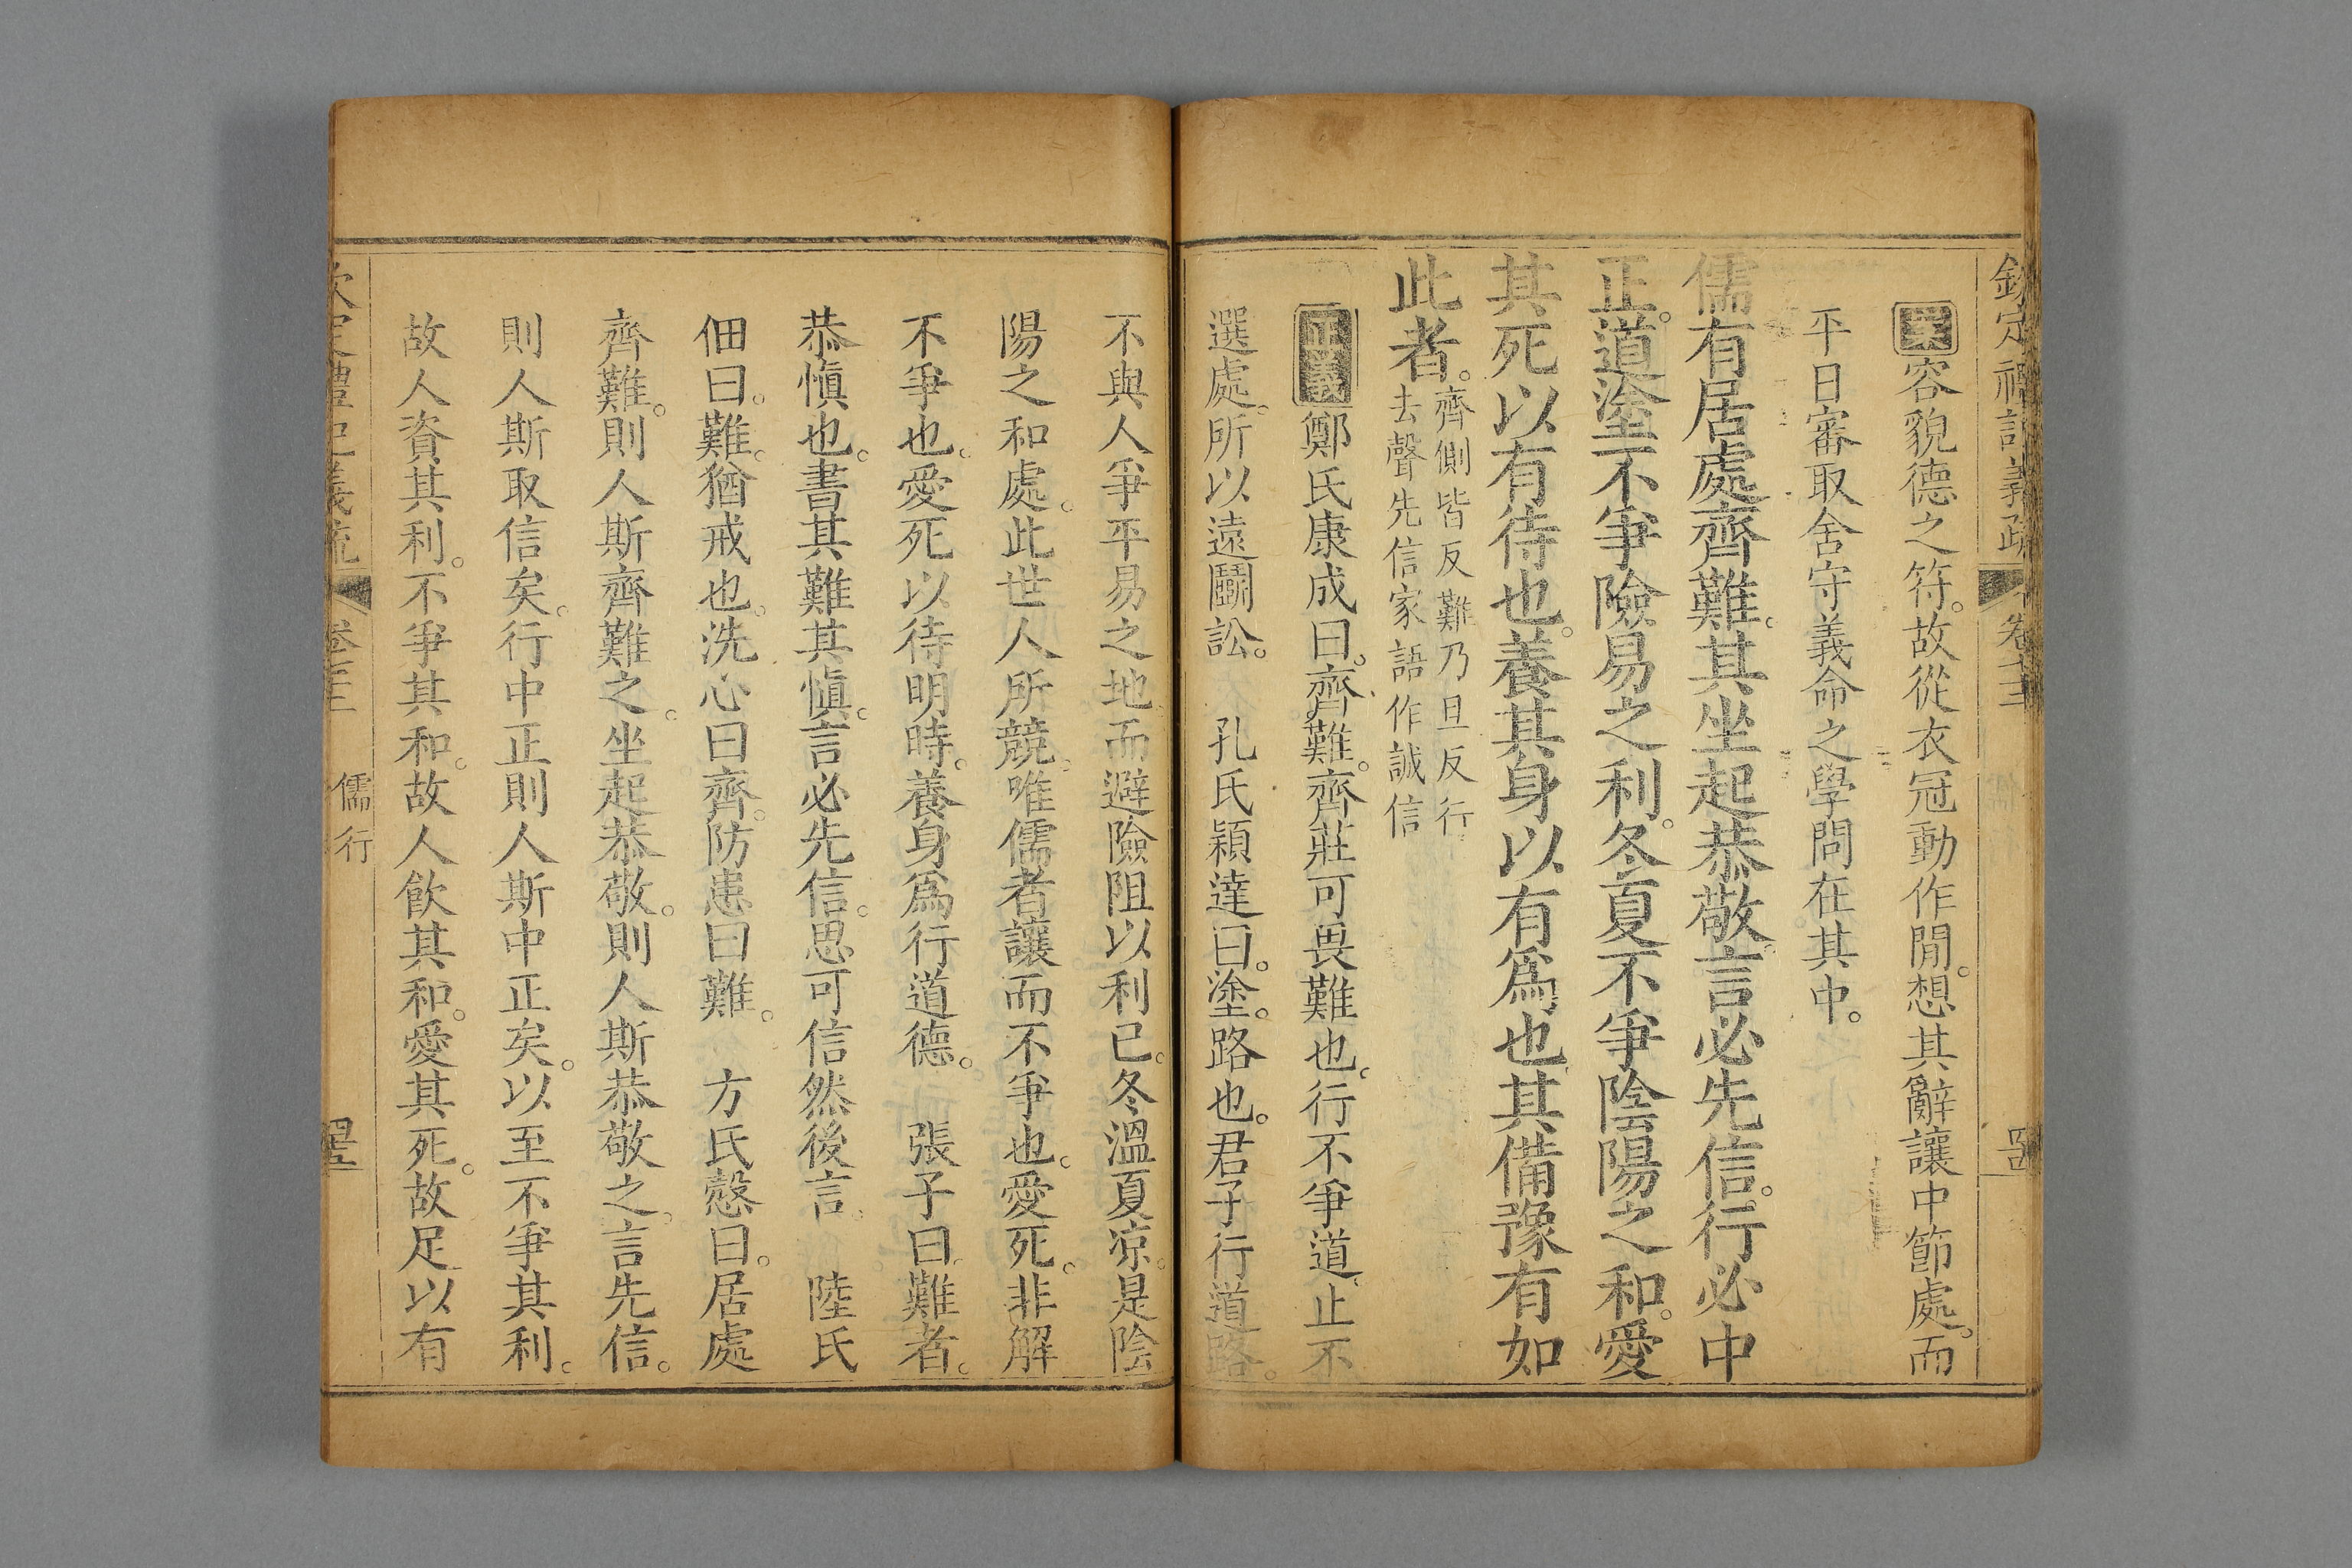 欽定禮記義疏 卷七十三
容貌德之符。故從衣冠動作閒。想其辭讓中節處。而
平日審取舍守義命之學問在其中。
儒有居處齊難。其坐起恭敬。言必先信。行必中
正。道塗不爭險易之利。冬夏不爭陰陽之和。愛
其死以有待也。養其身以有爲也。其備豫有如
此者。
齊側皆反難乃旦反行
去聲先信家語作誠信
正義鄭氏康成曰。齊難。齊莊可畏難也。行不爭道。止不
選處。所以遠鬭訟。 孔氏穎達曰。塗。路也。君子行道路。
不與人爭平易之地而避險阻以利己。冬溫夏凉。是陰
陽之和處。此世人所競。唯儒者讓而不爭也。愛死。非解
不爭也。愛死以待明時。養身爲行道德。 張子曰。難者。
恭愼也。書其難其愼。言必先信。思可信然後言。 陸氏
佃曰。難。猶戒也。洗心曰齊。防患曰難。 方氏慤曰。居處
齊難。則人斯齊難之。坐起恭敬。則人斯恭敬之。言先信。
則人斯取信矣。行中正則人斯中正矣。以至不爭其利。
故人資其利。不爭其和。故人飮其和。愛其死。故足以有
儒行